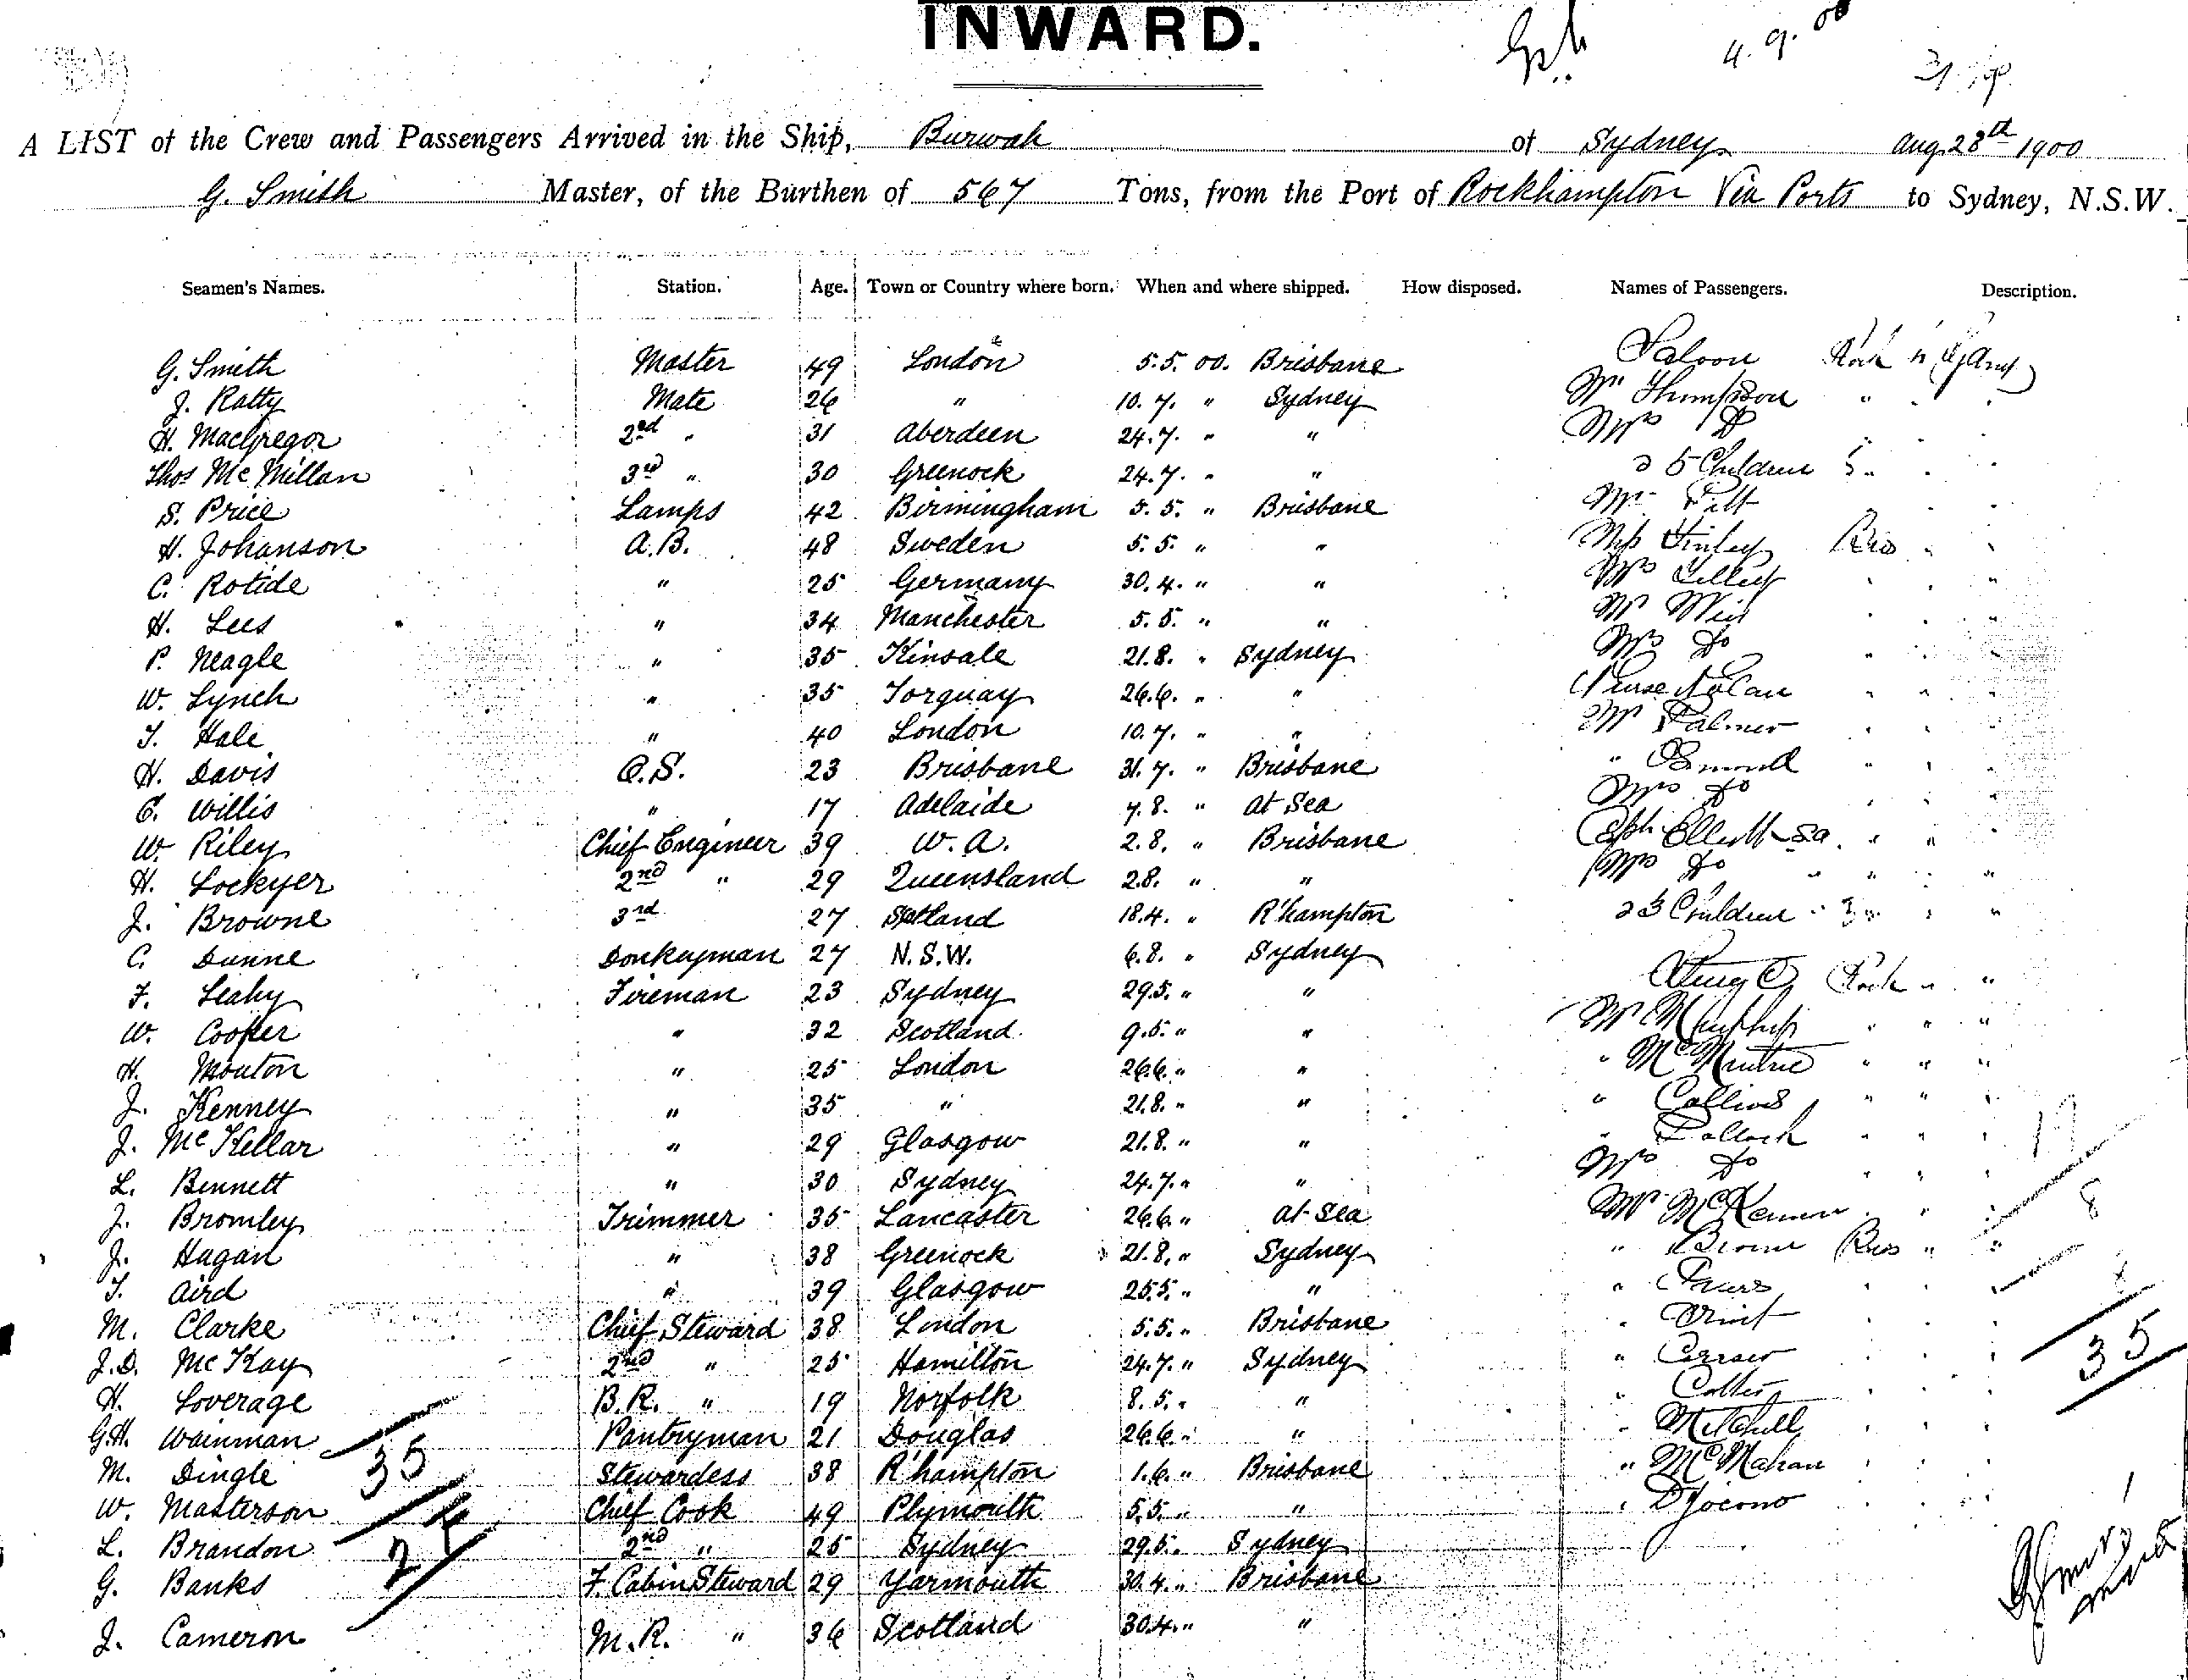 INWARD.
4. 9. 00
A LIST of the Crew and Passengers Arrived in the Ship, Burwah of Sydney Aug 28th 1900
G. Smith Master, of the Burthen of 567 Tons, from the Port of Rockhampton Via Ports to Sydney, N.S.W.
Seamen's Names. Station. Age. Town or Country where born. When and where shipped. How disposed. Names of Passengers. Description.
G. Smith Master 49 London 5.5.00. Brisbane Saloon Rock
J. Ratty Mate 26 " 10.7. " Sydney Mr Thompson "
H. MacGregor 2nd " 31 Aberdeen 24.7. " " Mrs Do
Thos McMillan 3rd " 30 Greenock 24.7. " " 5 Children 5
S. Price Lamps 42 Birmingham 5.5. " Brisbane Mr
H. Johanson A.B. 48 Sweden 5.5. " " Finley Bris
C. Rotide " 25 Germany 30.4. " " Mrs
H. Lees " 34 Manchester 5.5. " " Mr Weir
P. Neagle " 35 Kinsale 21.8. " Sydney Mrs Do
W. Lynch " 35 Torquay 26.6. " " Nurse Nolan
T. Hale " 40 London 10.7. " " Mr Palmer
H. Davis O.S. 23 Brisbane 31.7. " Brisbane "
C. Willis " 17 Adelaide 7.8. " at Sea Mrs Do
W. Riley Chief Engineer 39 W.A. 2.8. " Brisbane Elliott
H. Lockyer 2nd " 29 Queensland 2.8. " " Mrs Do
J. Browne 3rd 27 Scotland 18.4. " R'hampton 3 Children 3
C. Dunne Donkeyman 27 N.S.W. 6.8. " Sydney
F. Leahy Fireman 23 Sydney 29.5. " " Rock "
W. Cooper " 32 Scotland 9.5. " " Mr
H. Mouton " 25 London 26.6. " " "
J. Kenney " 35 " 21.8. " " " Collins
J. McKellar " 29 Glasgow 21.8. " " " Pollock
L. Bennett " 30 Sydney 24.7. " " Mrs Do
J. Bromley Trimmer 35 Lancaster 26.6. " at Sea Mr
J. Hagan " 38 Greenock 21.8. " Sydney " Brown Bris "
T. Aird " 39 Glasgow 25.5. " " "
M. Clarke Chief Steward 38 London 5.5. " Brisbane "
J.D. McKay 2nd " 25 Hamilton 24.7. " Sydney "
H. Loverage B.R. " 19 Norfolk 8.5. " " "
G.H. Wainman Pantryman 21 Douglas 26.6. " " " Mitchell
M. Dingle Stewardess 38 R'hampton 1.6. " Brisbane " McMahan
W. Masterson Chief Cook 49 Plymouth 5.5. " "
L. Brandon 2nd " 25 Sydney 29.5. " Sydney
G. Banks F. Cabin Steward 29 Yarmouth 30.4. " Brisbane
J. Cameron M.R. " 36 Scotland 30.4. " "
35
17
8
35